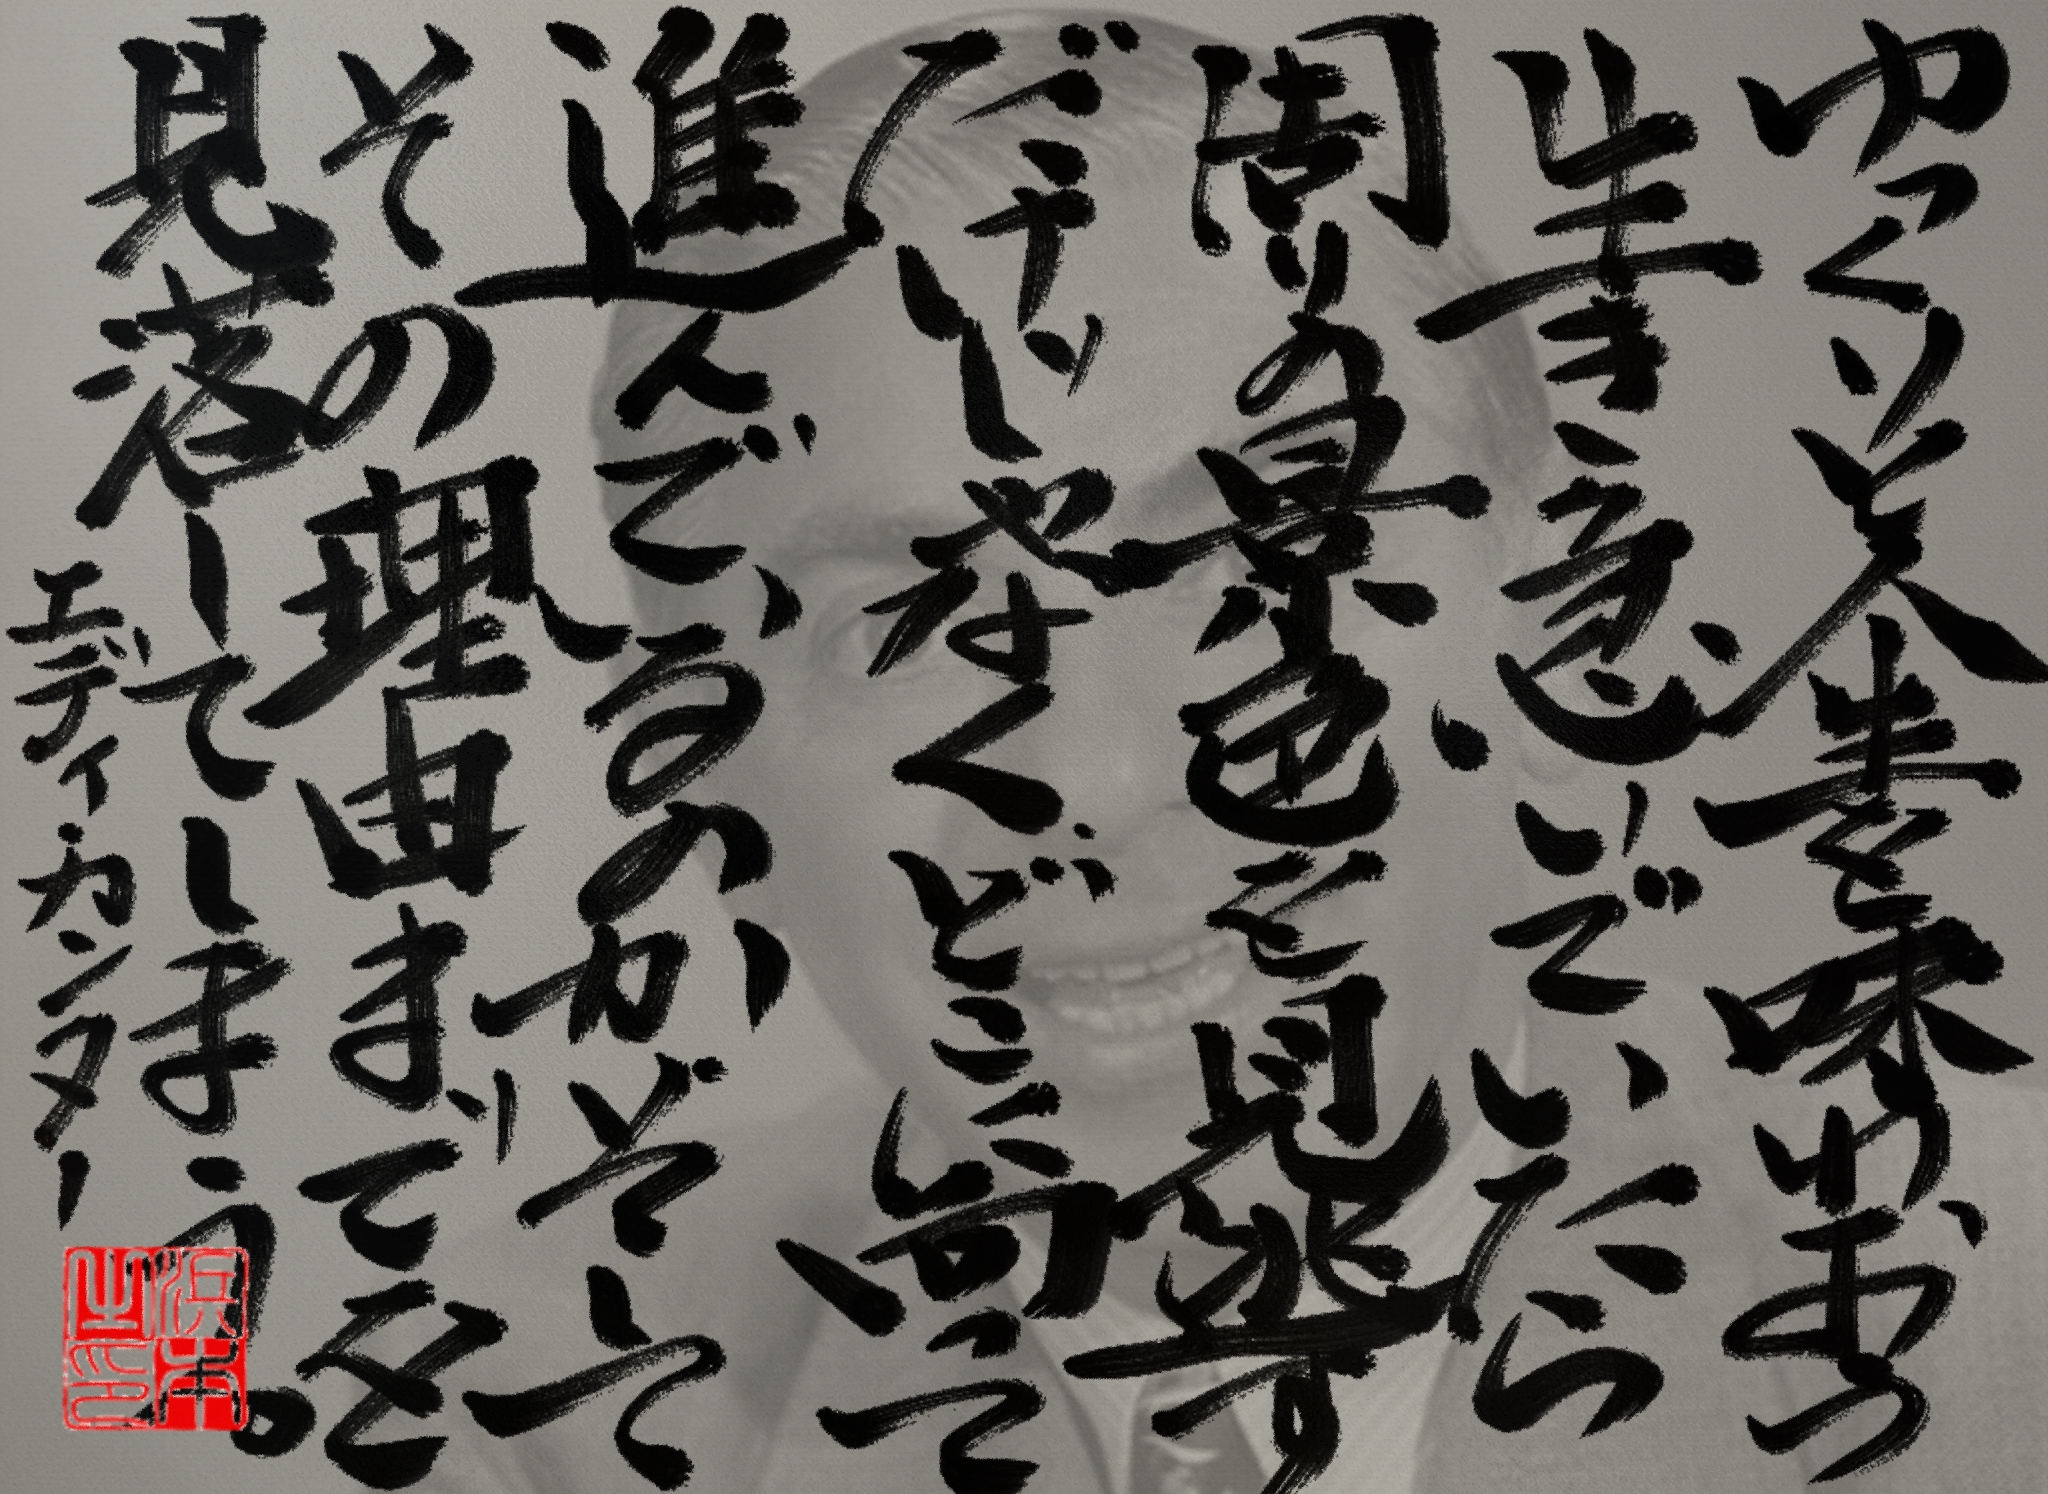 ゆっくりと人生を味わおう
生き急いでいたら
周りの景色を見逃す
だけじゃなくどこに向って
進んでいるのかそして
その理由までを
見落してしまう。
エディ・カンター
浜本之印